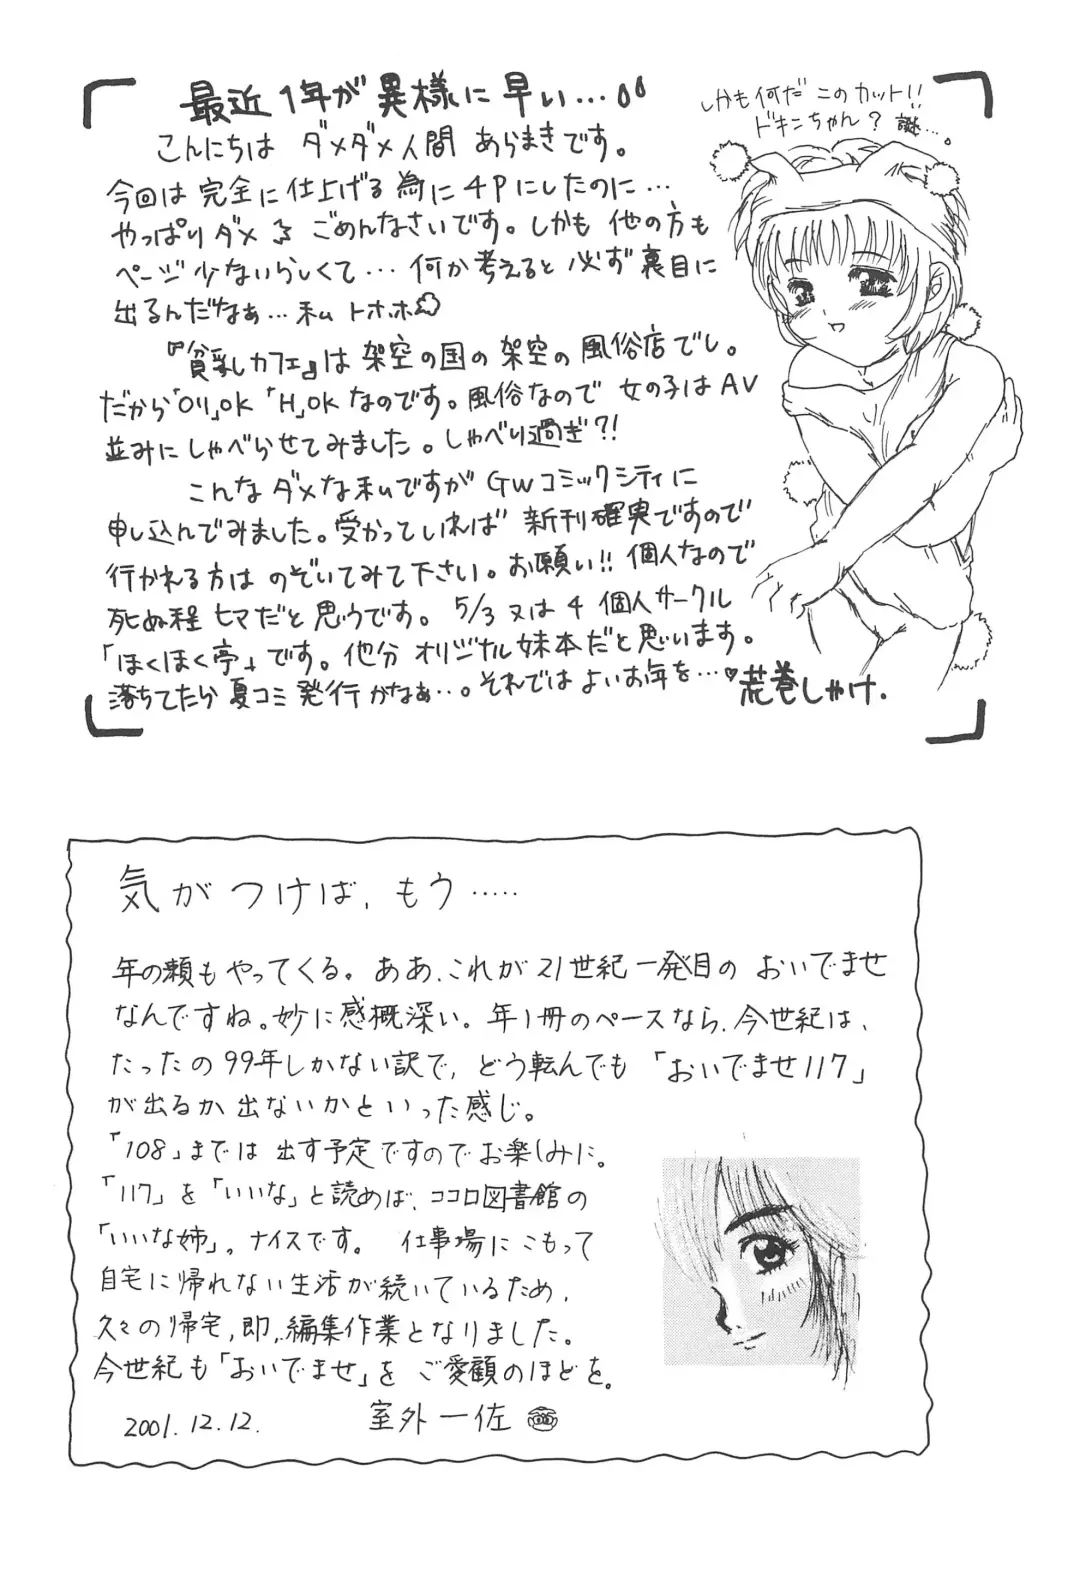 最近1年が異様に早い…
しかも何だ このカット!!
ドキンちゃん? 謎…。
こんにちは ダメダメ人間 あらまきです。
今回は 完全に仕上げる為に 4Pにしたのに…
やっぱりダメ ごめんなさいです。しかも 他の方も
ページ少ないらしくて… 何か考えると 必ず裏目に
出るんだなぁ…私 トホホ
『貧乳カフェ』は 架空の国の 架空の 風俗店でし。
だから「Oリ」OK 「H」OK なのです。風俗なので 女の子は AV
並みに しゃべらせてみました。しゃべり過ぎ?!
こんな ダメな 私ですが GWコミックシティに
申し込んでみました。受かっていれば 新刊確実ですので
行かれる方は のぞいてみて下さい。お願い!! 個人なので
死ぬ程 ヒマだと 思うです。 5/3 又は 4 個人サークル
「ほくほく亭」です。多分 オリジナル妹本だと思います。
落ちてたら 夏コミ 発行かなぁ…。それでは よいお年を…♥ 荒巻しゃけ.
気がつけば、もう‥‥‥
年の瀬もやってくる。ああ、これが 21世紀一発目の おいでませ
なんですね。妙に感慨深い。年1冊のペースなら、今世紀は、
たったの 99年しかない訳で、どう転んでも 「おいでませ117」
が出るか 出ないかといった感じ。
「108」までは 出す予定ですのでお楽しみに。
「117」を「いいな」と読めば、ココロ図書館の
「いいな姉」。ナイスです。 仕事場に こもって
自宅に帰れない生活が続いているため、
久々の帰宅,即,編集作業となりました。
今世紀も「おいでませ」を ご愛顧のほどを。
2001.12.12. 室外一佐